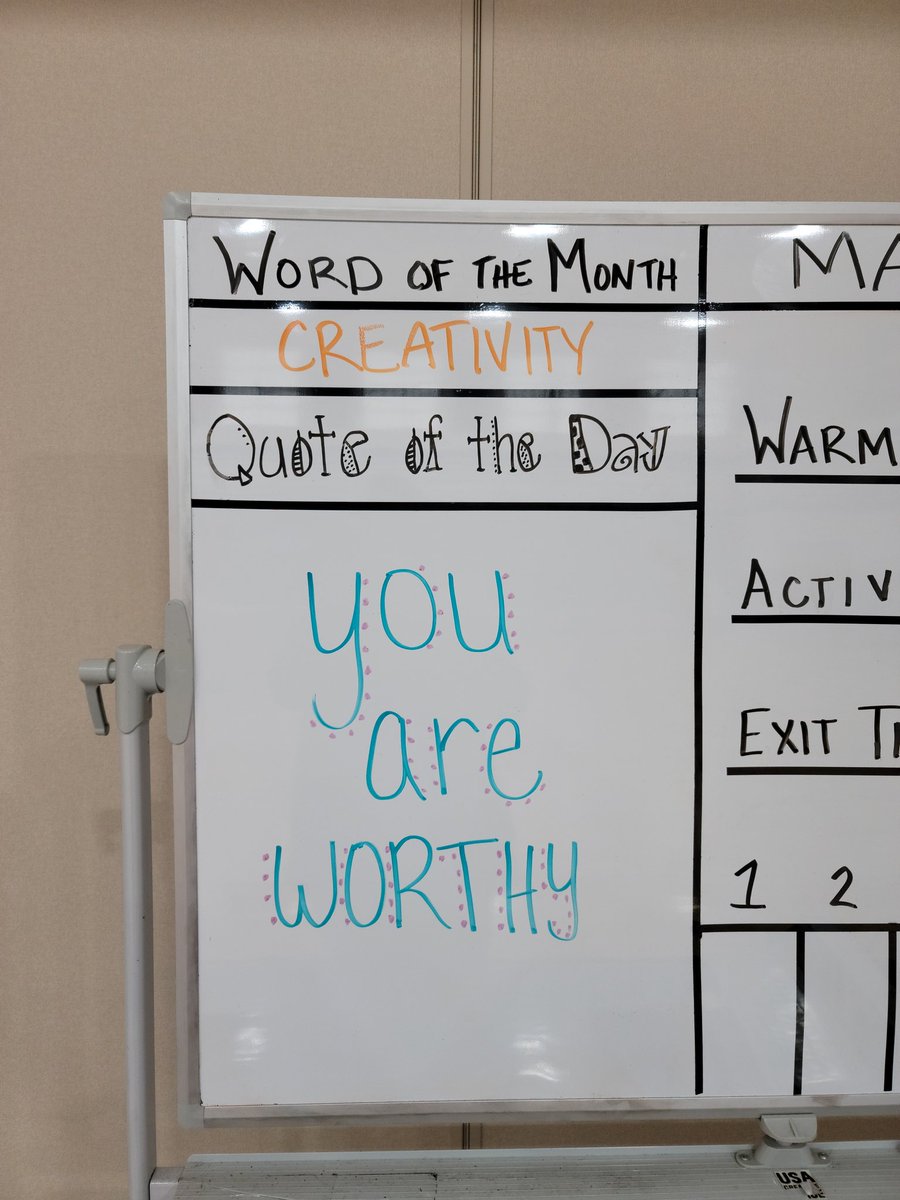 WORD OF THE MONTH
CREATIVITY
Quote of the Day
you
are
WORTHY
MA
WARM
ACTIV
EXIT
1 2
USA